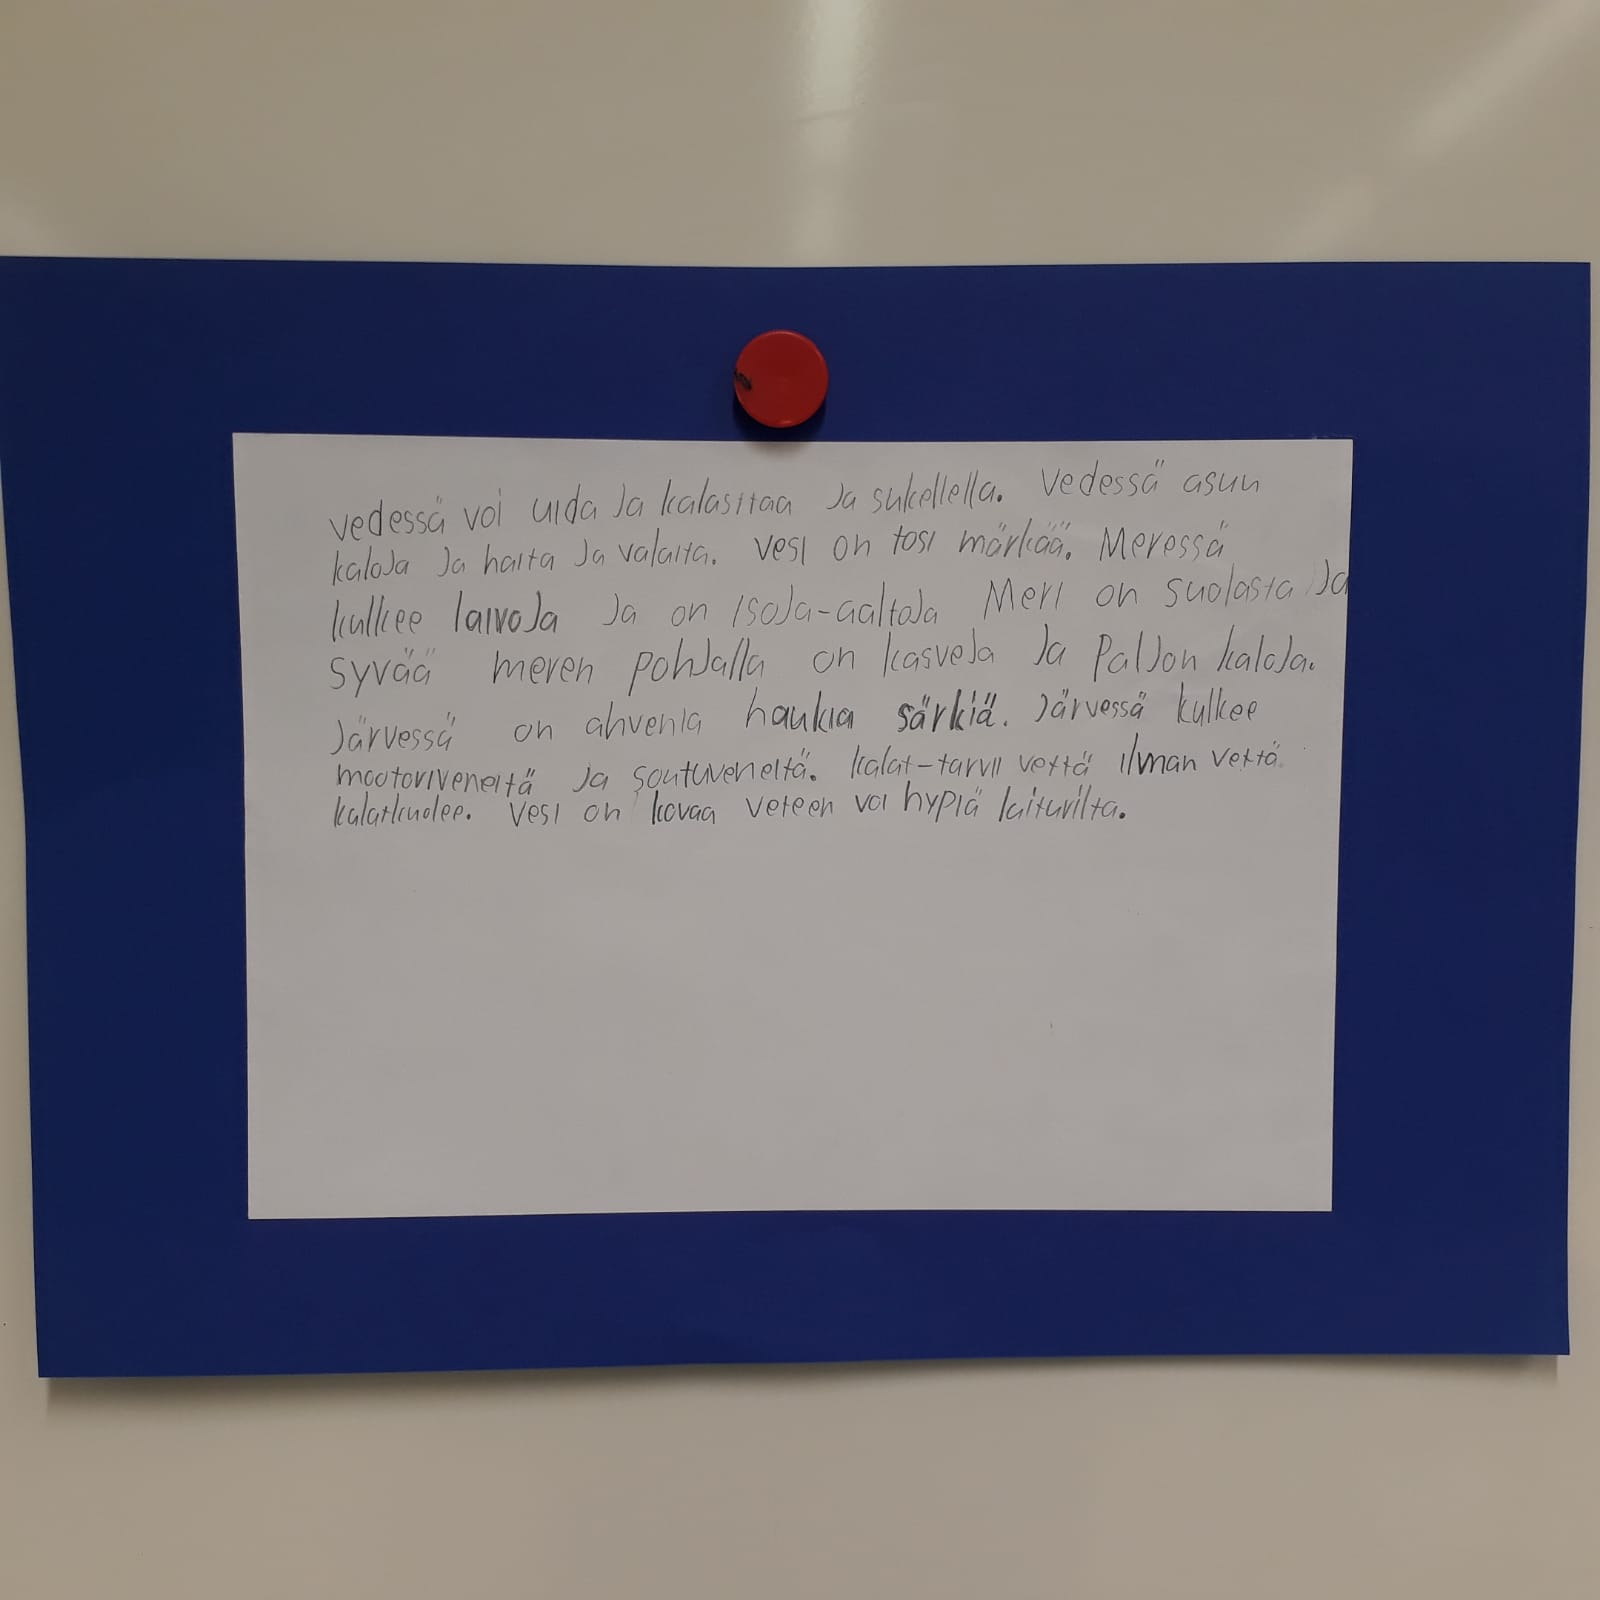 vedessä voi uida Ja kalasttaa Ja sukellella. Vedessä asuu
kaloJa Ja haita Ja valaita. Vesi on tosi märkää. Meressä
kulkee laivoJa Ja on isoJa-aaltoJa Meri on suolasta Ja
syvää meren pohJalla on kasveJa Ja PalJon kaloJa.
Järvessä on ahvenia haukia särkiä. Järvessä kulkee
mootoriveneitä Ja soutuveneitä. kalat-tarvii vettä ilman vettä
kalatkuolee. Vesi on kovaa veteen voi hypiä laiturilta.